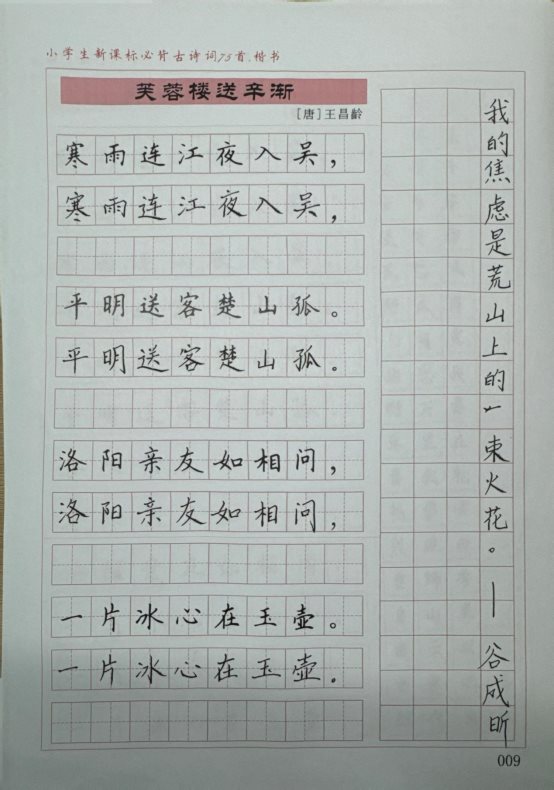 小学生新课标必背古诗词75首.楷书
芙蓉楼送辛渐
[唐]王昌龄
寒雨连江夜入吴，
寒雨连江夜入吴，
平明送客楚山孤。
平明送客楚山孤。
洛阳亲友如相问，
洛阳亲友如相问，
一片冰心在玉壶。
一片冰心在玉壶.
我的焦虑是荒山上的一束火花。—谷成昕
009